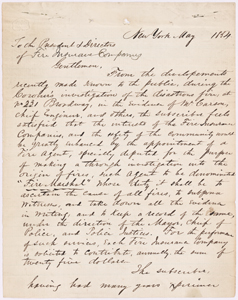 New York May 1854
To the President & Directors
of Fire Insurance Companies
Gentlemen,
From the developements
recently made known to the public, during the
Coroner's investigation of the disastrous fire, at
No 231 Broadway, in the evidence of Mr Carson,
Chief Engineer, and others, the subscriber feels
satisfied that the interests of the Fire Insurance
Companies, and the safety of the community would
be greatly enhanced by the appointment of a
Fire Agent, specially deputed for the purpose
of making a thorough investigation into the
origin of fires; such Agent to be denominated
"Fire Marshal" whose duty it shall be to
ascertain the cause of all fires, to subpoena
witnesses, and take down all the evidence
in writing, and to keep a record of the same,
under the direction of the Mayor, Chief of
Police, and Police Justices. For the performance
of such services, Each Fire Insurance Company
is solicited to contribute, annually the sum of
twenty five dollars.
The subscriber
having had many years experience